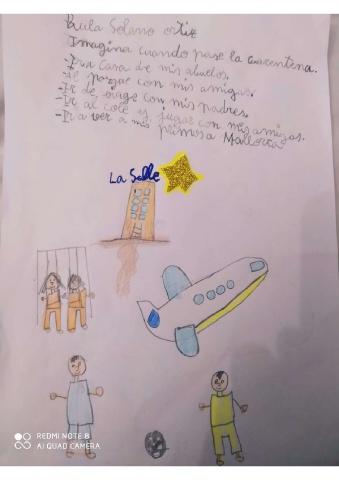 Paula Solano ortiz
Imagina cuando pase la cuarentena.
-Ir a casa de mis abuelos.
-al parque con mis amigas.
-Ir de biage con mis padres.
-Ir al cole y jugar con mis amigas.
-Ir a ver a mis primos a Mallorca
La Salle
REDMI NOTE 8
AI QUAD CAMERA